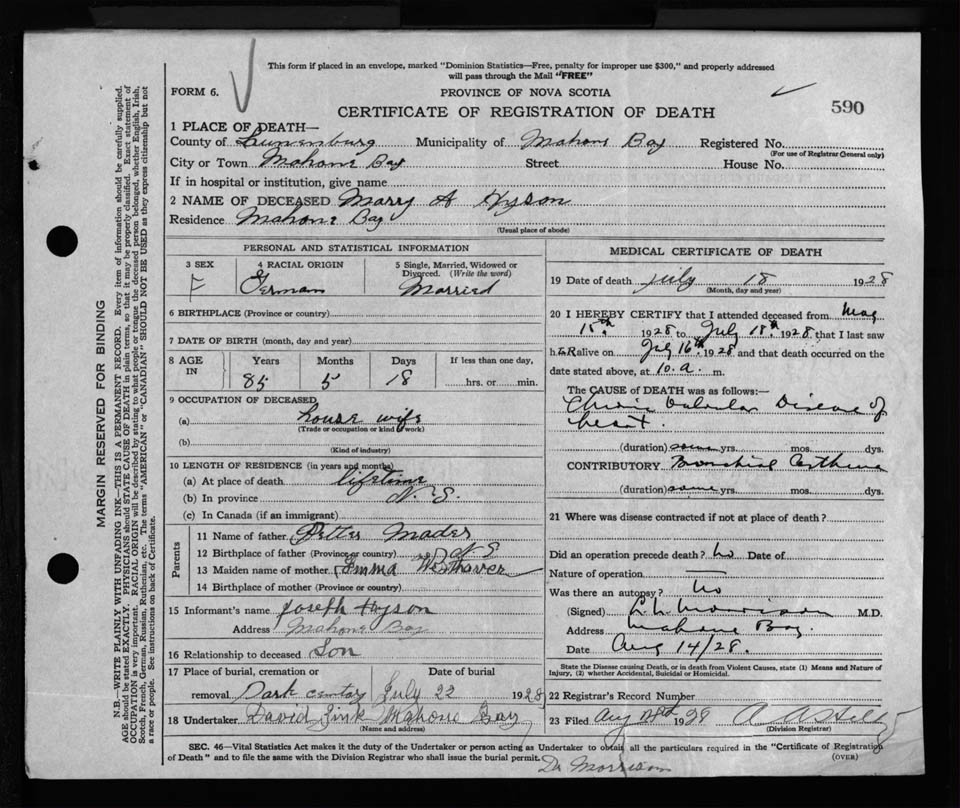 This form if placed in an envelope, marked "Dominion Statistics—Free, penalty for improper use $300," and properly addressed
will pass through the Mail "FREE"
FORM 6.
PROVINCE OF NOVA SCOTIA
CERTIFICATE OF REGISTRATION OF DEATH
590
1 PLACE OF DEATH—
County of Lunenburg Municipality of Mahone Bay Registered No.
(For use of Registrar General only)
City or Town Mahone Bay Street House No.
If in hospital or institution, give name
2 NAME OF DECEASED Marry A Hyson
Residence Mahone Bay
(Usual place of abode)
PERSONAL AND STATISTICAL INFORMATION
3 SEX
F
4 RACIAL ORIGIN
German
5 Single, Married, Widowed or
Divorced. (Write the word)
Married
6 BIRTHPLACE (Province or country)
7 DATE OF BIRTH (month, day and year)
8 AGE
IN
Years Months Days If less than one day,
85 5 18 hrs. or min.
9 OCCUPATION OF DECEASED
(a) house wife
(Trade or occupation or kind of work)
(b)
(Kind of industry)
10 LENGTH OF RESIDENCE (in years and months)
(a) At place of death lifetime
(b) In province N. S.
(c) In Canada (if an immigrant)
Parents
11 Name of father Petter Mader
12 Birthplace of father (Province or country) N S
13 Maiden name of mother Emma Westhaver
14 Birthplace of mother (Province or country)
15 Informant's name Joseph Hyson
Address Mahone Bay
16 Relationship to deceased Son
17 Place of burial, cremation or Date of burial
removal Park July 22 1928
18 Undertaker David Zink Mahone Bay
(Name and address)
MEDICAL CERTIFICATE OF DEATH
19 Date of death July 18 1928
(Month, day and year)
20 I HEREBY CERTIFY that I attended deceased from May
15th 1928 to July 18th 1928 that I last saw
her alive on July 16th 1928 and that death occurred on the
date stated above, at 10. a. m.
The CAUSE of DEATH was as follows:—
Chronic Valvular Disease of
heart.
(duration) some yrs. mos. ds.
CONTRIBUTORY Bronchial Asthma
(duration) some yrs. mos. ds.
21 Where was disease contracted if not at place of death?
Did an operation precede death? no Date of
Nature of operation —
Was there an autopsy? no
(Signed) Morrison M.D.
Address Mahone Bay.
Date Aug 14/28.
State the Disease causing Death, or in death from Violent Causes, state (1) Means and Nature of
Injury, (2) whether Accidental, Suicidal or Homicidal.
22 Registrar's Record Number
23 Filed Aug 1928
(Division Registrar)
SEC. 46—Vital Statistics Act makes it the duty of the Undertaker or person acting as Undertaker to obtain all the particulars required in the "Certificate of Registration
of Death" and to file the same with the Division Registrar who shall issue the burial permit.
(OVER)
Dr Morrison
MARGIN RESERVED FOR BINDING
N.B.—WRITE PLAINLY WITH UNFADING INK—THIS IS A PERMANENT RECORD. Every item of information should be carefully supplied.
AGE should be stated EXACTLY. PHYSICIANS should STATE CAUSE OF DEATH in plain terms, so that it may be properly classified. Exact statement of
OCCUPATION is very important. RACIAL ORIGIN will be described by stating to what people or tongue the deceased person belonged, whether English, Irish,
Scotch, French, German, Russian, Ruthenian, etc. The terms "AMERICAN" or "CANADIAN" SHOULD NOT BE USED as they express citizenship but not
a race or people. See instructions on back of Certificate.